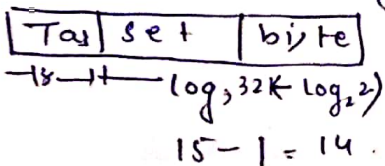 Tag set byte
18 log₂ 32K - log₂ 2)
15 - 1 = 14.